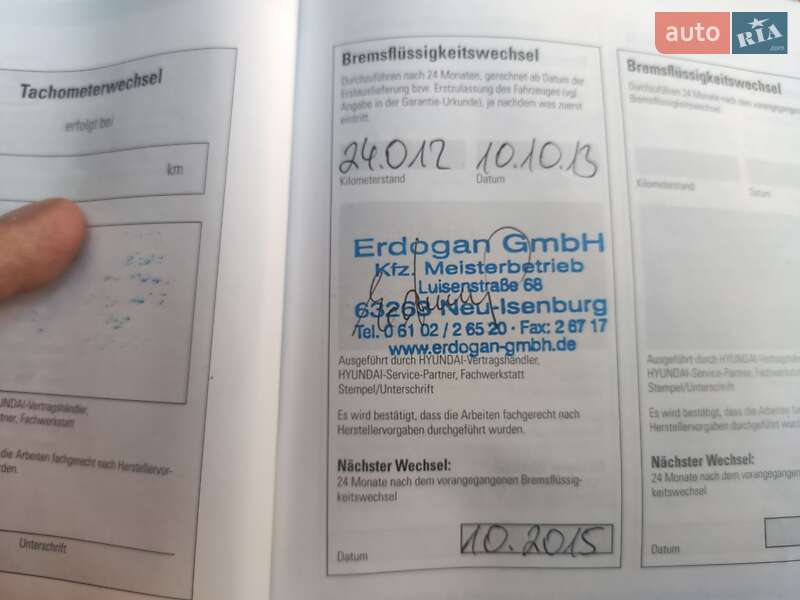 auto RIA .com
Tachometerwechsel
erfolgt bei
km
HYUNDAI-Vertragshändler,
Fachwerkstatt
die Arbeiten fachgerecht nach Herstellervor-
Unterschrift
Bremsflüssigkeitswechsel
Durchzuführen nach 24 Monaten, gerechnet ab Datum der
Erstauslieferung bzw. Erstzulassung des Fahrzeuges (vgl.
Angabe in der Garantie-Urkunde), je nachdem was zuerst
eintritt.
24.012 10.10.13
Kilometerstand Datum
Erdogan GmbH
Kfz. Meisterbetrieb
Luisenstraße 68
63263 Neu-Isenburg
Tel. 0 61 02 / 2 65 20 · Fax: 2 67 17
www.erdogan-gmbh.de
Ausgeführt durch HYUNDAI-Vertragshändler,
HYUNDAI-Service-Partner, Fachwerkstatt
Stempel/Unterschrift
Es wird bestätigt, dass die Arbeiten fachgerecht nach
Herstellervorgaben durchgeführt wurden.
Nächster Wechsel:
24 Monate nach dem vorangegangenen Bremsflüssig-
keitswechsel
Datum 10.2015
Bremsflüssigkeitswechsel
Durchzuführen 24 Monate nach dem vorangegangenen
Bremsflüssigkeitswechsel.
Kilometerstand Datum
Ausgeführt durch HYUNDAI-Vertragshändler
HYUNDAI-Service-Partner, Fachwerkstatt
Stempel/Unterschrift
Es wird bestätigt, dass die Arbeiten fachgerecht
Herstellervorgaben durchgeführt
Nächster Wechsel:
24 Monate nach dem vorangegangenen
keitswechsel
Datum